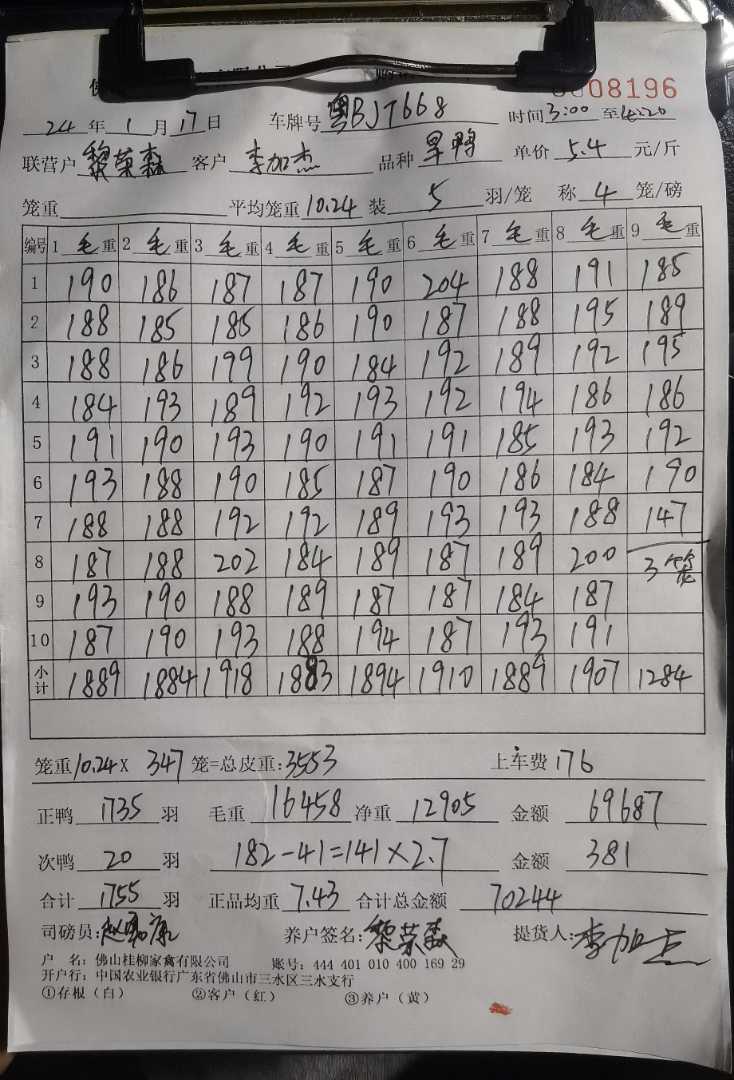 08196
24年1月17日 车牌号粤BJT668 时间3:00至4:20
联营户黎荣森 客户李加杰 品种旱鸭 单价5.4元/斤
笼重 平均笼重10.24装5羽/笼 称4笼/磅
编号 1毛重 2毛重 3毛重 4毛重 5毛重 6毛重 7毛重 8毛重 9毛重
1 190 186 187 187 190 204 188 191 185
2 188 185 185 186 190 187 188 195 189
3 188 186 199 190 184 192 189 192 195
4 184 193 189 192 193 192 194 186 186
5 191 190 193 190 191 191 185 193 192
6 193 188 190 185 187 190 186 184 190
7 188 188 192 192 189 193 193 188 147
8 187 188 202 184 189 187 189 200 3笼
9 193 190 188 189 187 187 184 187
10 187 190 193 188 194 187 193 191
小计 1889 1884 1918 1883 1894 1910 1889 1907 1284
笼重10.24×347笼=总皮重:3553 上车费176
正鸭1735羽 毛重16458净重12905 金额69687
次鸭20羽 182-41=141×2.7 金额381
合计1755羽 正品均重7.43合计总金额70244
司磅员: 养户签名:黎荣森 提货人:李加杰
户 名:佛山桂柳家禽有限公司 账号:444 401 010 400 169 29
开户行:中国农业银行广东省佛山市三水区三水支行
①存根（白） ②客户（红） ③养户（黄）